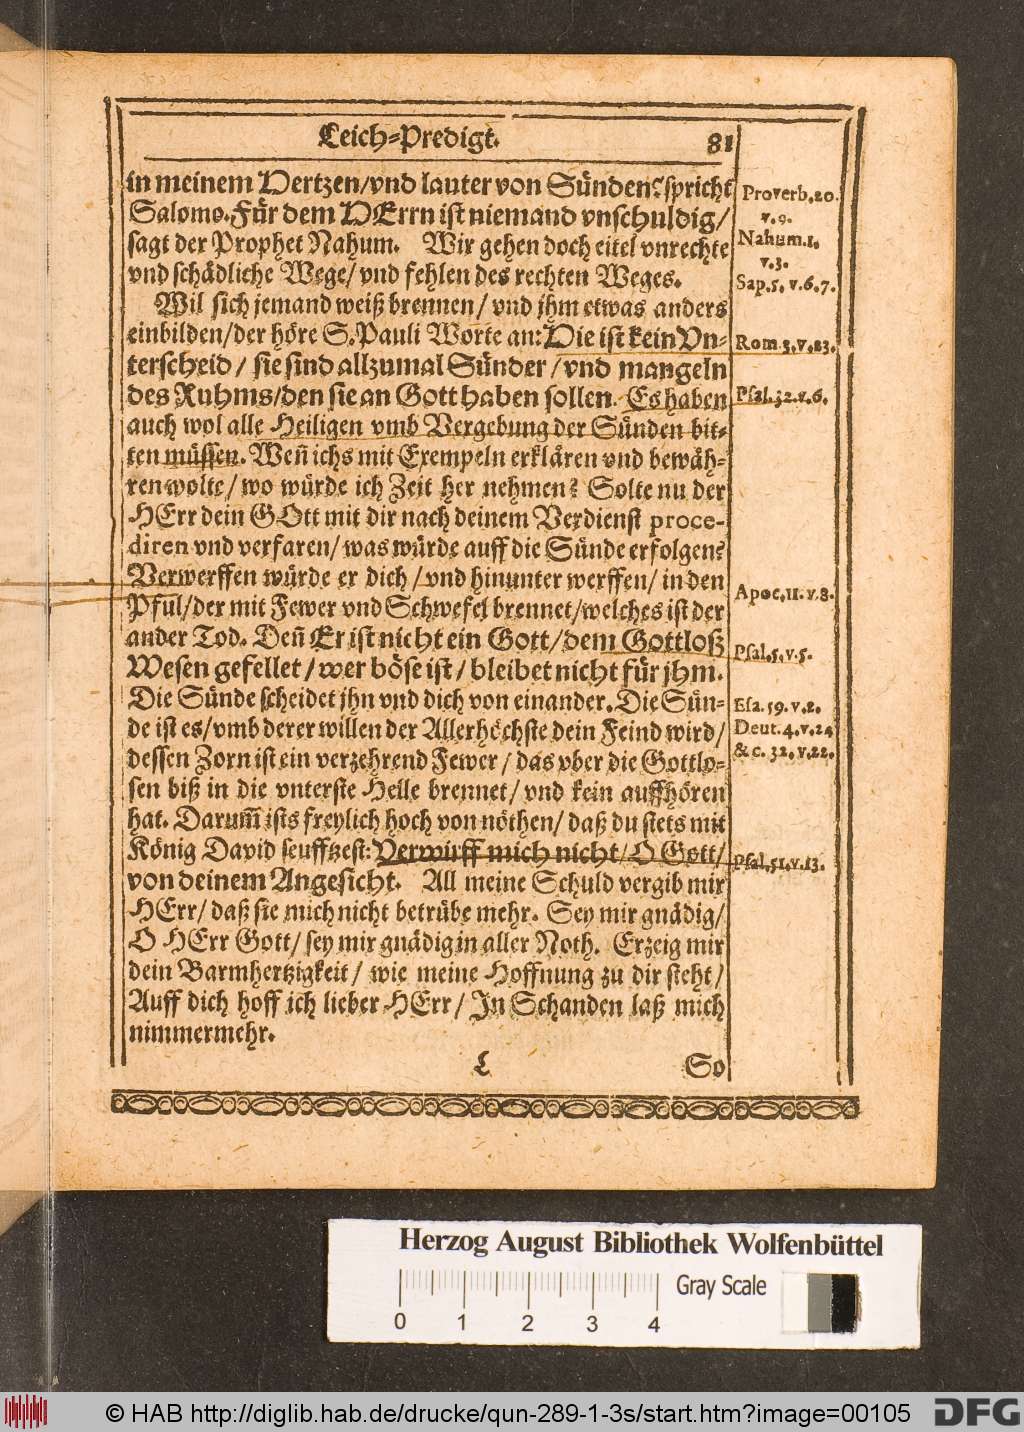 Leich-Predigt. 81
in meinem Hertzen/vnd lauter von Sünden? spricht
Salomo. Für dem HErrn ist niemand vnschuldig/
sagt der Prophet Nahum. Wir gehen doch eitel vnrechte
vnd schädliche Wege/ vnd fehlen des rechten Weges.
Wil sich jemand weiß brennen/ vnd jhm etwas anders
einbilden/der höre S. Pauli Worte an: Die ist kein Vn-
terscheid/ sie sind allzumal Sünder/vnd mangeln
des Ruhms/den sie an Gott haben sollen. Es haben
auch wol alle Heiligen vmb Vergebung der Sünden bit-
ten müssen. Weñ ichs mit Exempeln erklären vnd bewäh-
ren wolte/ wo würde ich Zeit her nehmen? Solte nu der
HErr dein GOtt mit dir nach deinem Verdienst proce-
diren vnd verfaren/ was würde auff die Sünde erfolgen?
Verwerffen würde er dich/vnd hinunter werffen/ in den
Pful/der mit Fewer vnd Schwefel brennet/welches ist der
ander Tod. Deñ Er ist nicht ein Gott/dem Gottloß
Wesen gefellet/wer böse ist/bleibet nicht für jhm.
Die Sünde scheidet jhn vnd dich von einander. Die Sün-
de ist es/vmb derer willen der Allerhöchste dein Feind wird/
dessen Zorn ist ein verzehrend Fewer/ das vber die Gottlo-
sen biß in die vnterste Helle brennet/ vnd kein auffhören
hat. Darum̃ ists freylich hoch von nöthen/ daß du stets mit
König David seufftzest: Verwirff mich nicht/O Gott/
von deinem Angesicht. All meine Schuld vergib mir
HErr/ daß sie mich nicht betrübe mehr. Sey mir gnädig/
O HErr Gott/ sey mir gnädig in aller Noth. Erzeig mir
dein Barmhertzigkeit/ wie meine Hoffnung zu dir steht/
Auff dich hoff ich lieber HErr/ In Schanden laß mich
nimmermehr.
L So
Proverb. 20.
v. 9.
Nahum. 1.
v. 3.
Sap. 5. v. 6. 7.
Rom 3. v. 23.
Psal. 32. v. 6.
Apoc. 11. v. 8.
Psal. 5. v. 5.
Esa. 59. v. 2.
Deut. 4. v. 24
& c. 32. v. 22.
Psal. 51. v. 13.
Herzog August Bibliothek Wolfenbüttel
Gray Scale
0 1 2 3 4
© HAB http://diglib.hab.de/drucke/qun-289-1-3s/start.htm?image=00105
DFG